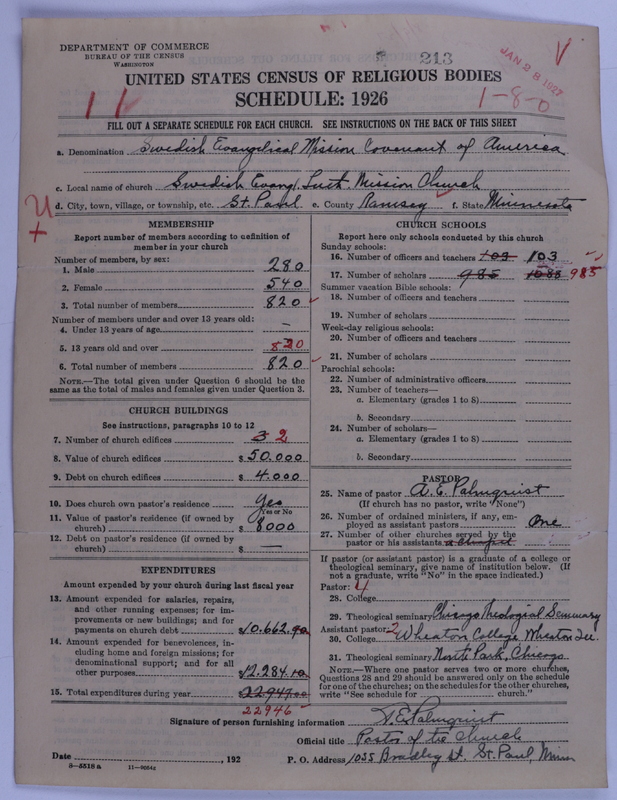 DEPARTMENT OF COMMERCE
BUREAU OF THE CENSUS
WASHINGTON
213
JAN 28 1927
UNITED STATES CENSUS OF RELIGIOUS BODIES
SCHEDULE: 1926
1-8-0
FILL OUT A SEPARATE SCHEDULE FOR EACH CHURCH. SEE INSTRUCTIONS ON THE BACK OF THIS SHEET
a. Denomination Swedish Evangelical Mission Covenant of America
c. Local name of church Swedish Evang. Luth. Mission Church
d. City, town, village, or township, etc. St. Paul e. County Ramsey f. State Minnesota
MEMBERSHIP
Report number of members according to definition of
member in your church
Number of members, by sex:
1. Male 280
2. Female 540
3. Total number of members 820
Number of members under and over 13 years old:
4. Under 13 years of age —
5. 13 years old and over 820
6. Total number of members 820
NOTE.—The total given under Question 6 should be
same as the total of males and females given under Question 3.
CHURCH BUILDINGS
See instructions, paragraphs 10 to 12
7. Number of church edifices 3 2
8. Value of church edifices $ 50.000
9. Debt on church edifices $ 4.000
10. Does church own pastor's residence Yes
Yes or No
11. Value of pastor's residence (if owned by
church) $ 8000
12. Debt on pastor's residence (if owned by
church) $ —
EXPENDITURES
Amount expended by your church during last fiscal year
13. Amount expended for salaries, repairs,
and other running expenses; for im-
provements or new buildings; and for
payments on church debt $10.662.90
14. Amount expended for benevolences, in-
cluding home and foreign missions; for
denominational support; and for all
other purposes $12.284.10
15. Total expenditures during year $22947.00
22946
CHURCH SCHOOLS
Report here only schools conducted by this church
Sunday schools:
16. Number of officers and teachers 103 103
17. Number of scholars 985 1088 985
Summer vacation Bible schools:
18. Number of officers and teachers
19. Number of scholars
Week-day religious schools:
20. Number of officers and teachers
21. Number of scholars
Parochial schools:
22. Number of administrative officers
23. Number of teachers—
a. Elementary (grades 1 to 8)
b. Secondary
24. Number of scholars—
a. Elementary (grades 1 to 8)
b. Secondary
PASTOR
25. Name of pastor A. E. Palmquist
(If church has no pastor, write "None")
26. Number of ordained ministers, if any, em-
ployed as assistant pastors One
27. Number of other churches served by the
pastor or his assistants
If pastor (or assistant pastor) is a graduate of a college or
theological seminary, give name of institution below. (If
not a graduate, write "No" in the space indicated.)
Pastor: 4
28. College
29. Theological seminary Chicago Theological Seminary
Assistant pastor: 2
30. College Wheaton College, Wheaton Ill.
31. Theological seminary North Park, Chicago.
NOTE.—Where one pastor serves two or more churches,
Questions 28 and 29 should be answered only on the schedule
for one of the churches; on the schedules for the other churches,
write "See schedule for church."
Signature of person furnishing information A. E. Palmquist
Official title Pastor of the Church
Date , 192 P. O. Address 1035 Bradley St. St. Paul, Minn
8-5518 a 11-9084